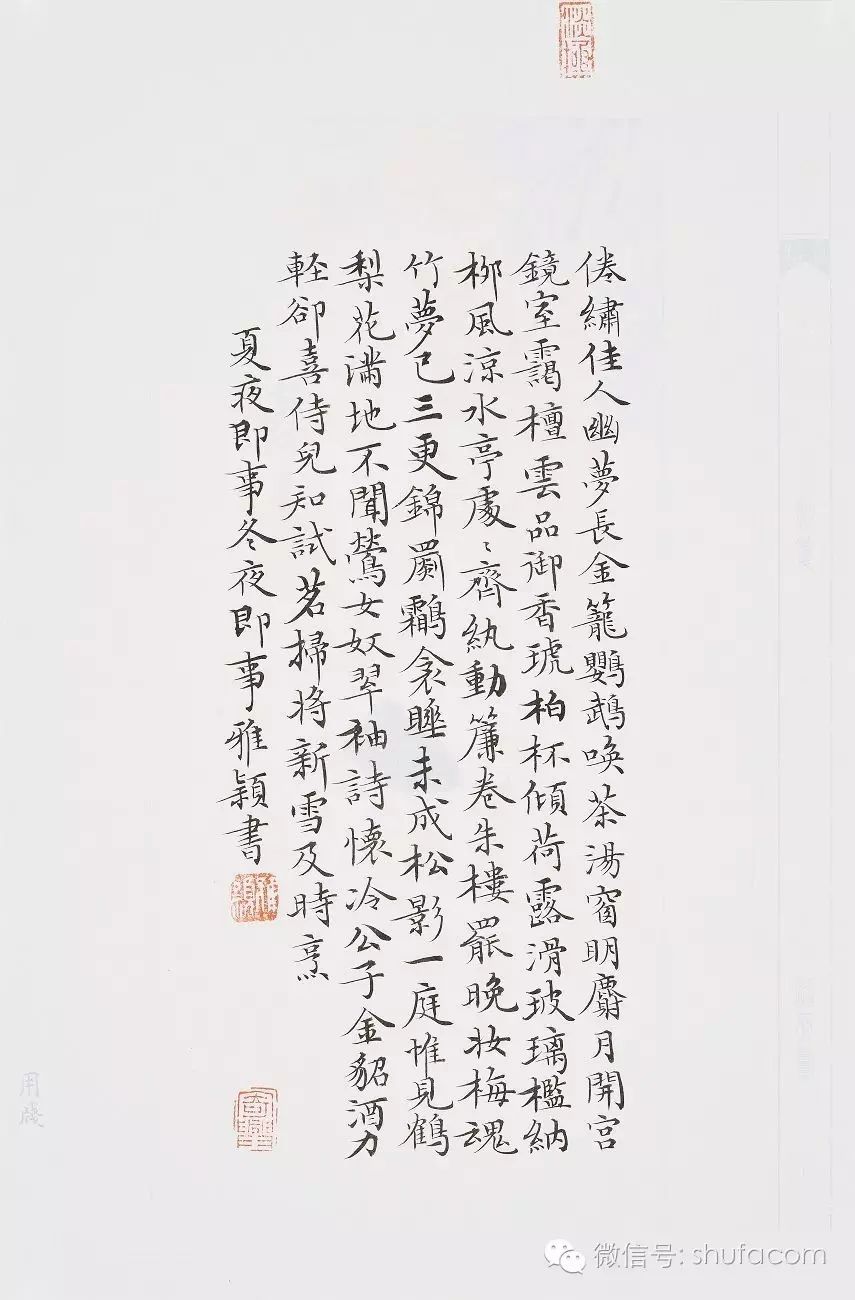 倦繡佳人幽夢長金籠鸚鵡喚茶湯窗明麝月開宮
鏡室靄檀雲品御香琥柏杯傾荷露滑玻璃檻納
柳風涼水亭處〻齊紈動簾卷朱樓罷晚妝梅魂
竹夢已三更錦罽鸘衾睡未成松影一庭惟見鶴
梨花滿地不聞鶯女奴翠袖詩懷冷公子金貂酒力
軽卻喜侍兒知試茗掃將新雪及時烹
夏夜即事冬夜即事雅穎書
用牋
微信号: shufacom